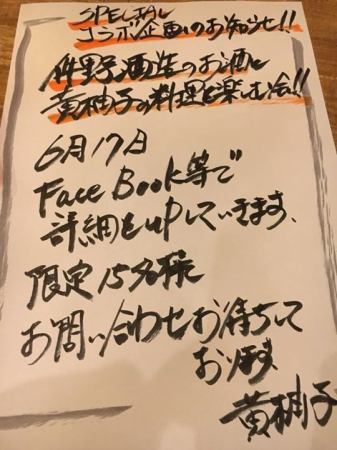 SPECIAL
コラボ企画のお知らせ!!
伴野酒造のお酒と
黄柚子の料理を楽しむ会!!
6月17日
Face Book等で
詳細をupしていきます、
限定15名様
お問い合わせお待ちして
おります、
黄柚子